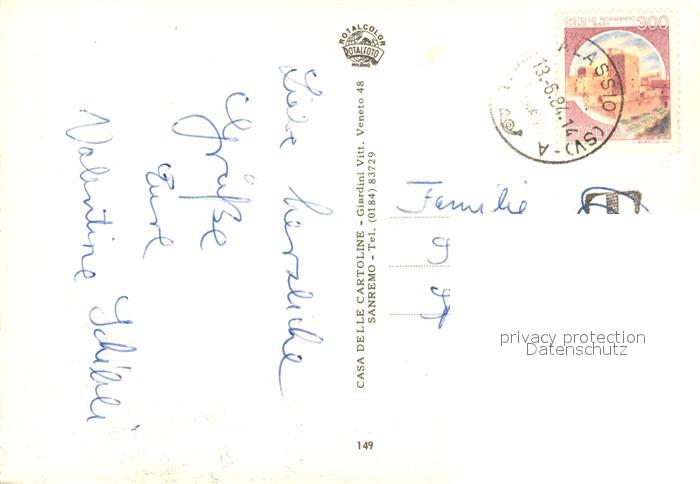 Liebe herzliche
Grüße
Eure
Valentine
ROTALCOLOR
ROTALFOTO
MILANO
CASA DELLE CARTOLINE - Giardini Vitt. Veneto 48
SANREMO - Tel. (0184) 83729
149
CASTELLO NORMANNO
SVEVO - BARI
300
ITALIA
ALASSIO (SV)
13.6.84.14
A
Familie
privacy protection
Datenschutz